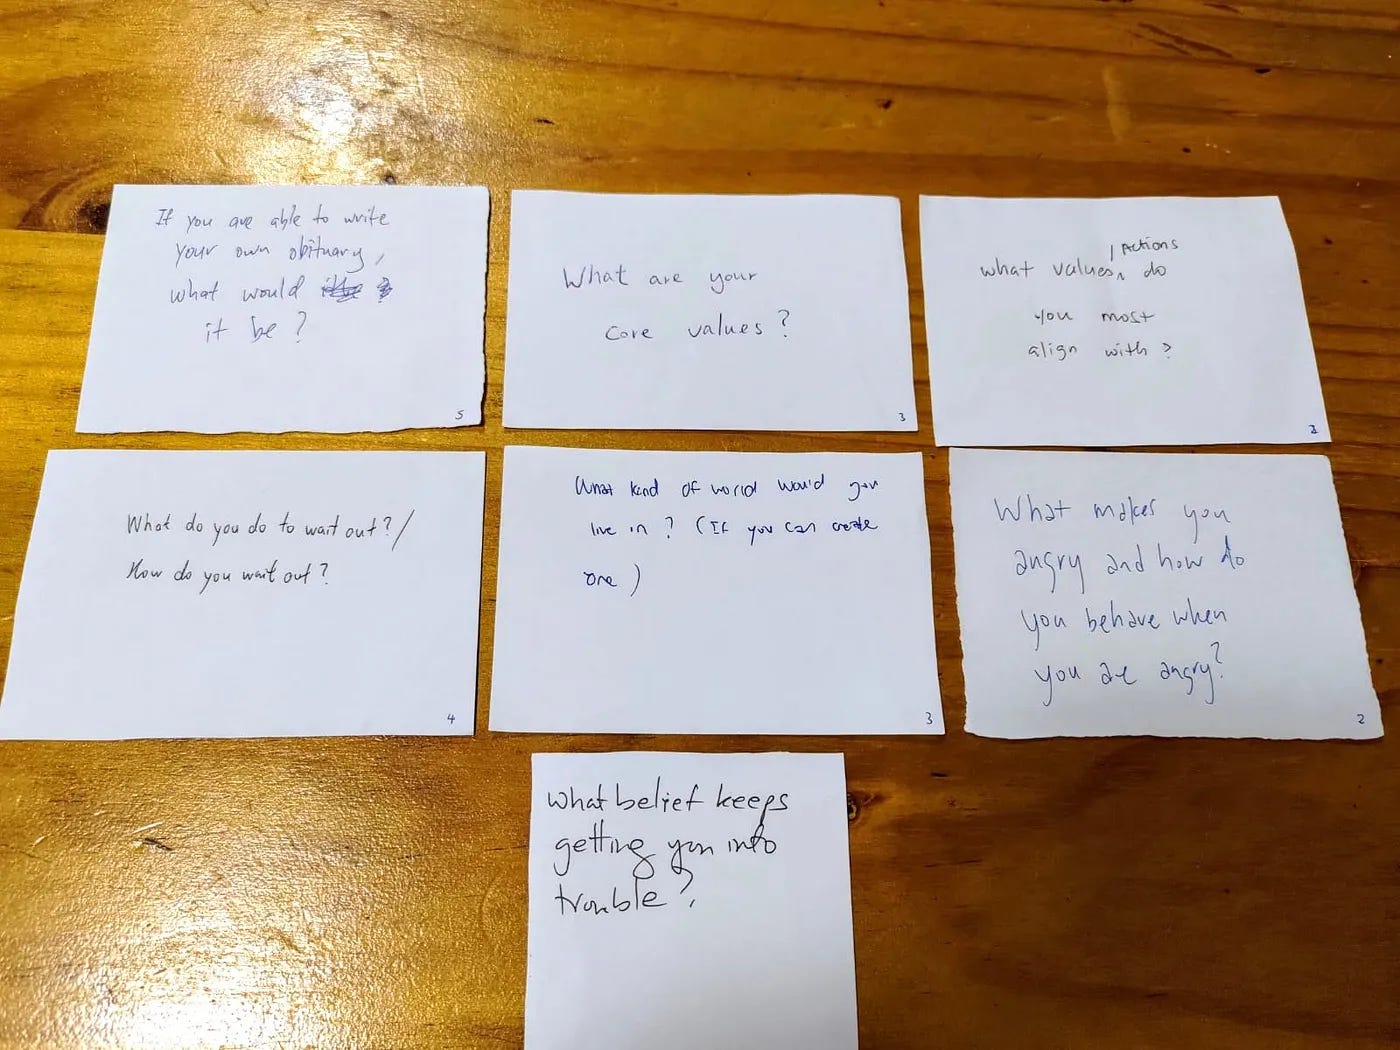 If you are able to write
your own obituary,
what would
it be?
5
What are your
core values?
3
/Actions
what values, do
you most
align with?
2
What do you do to wait out?/
How do you wait out?
4
What kind of world would you
live in? (If you can create
one)
3
What makes you
angry and how do
you behave when
you are angry?
2
What belief keeps
getting you into
trouble?